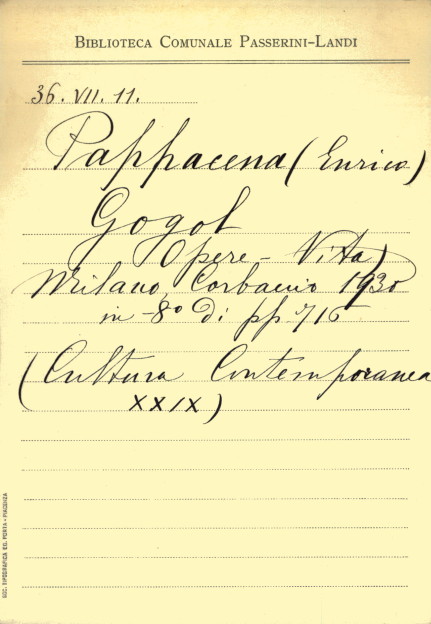 BIBLIOTECA COMUNALE PASSERINI-LANDI
36. VII. 11.
Pappacena (Enrico)
Gogol
Opere - Vita)
Milano, Corbaccio 1930
in-8º di pp 716
(Cultura Contemporanea
XXIX)
SOC. TIPOGRAFICA ED. PORTA - PIACENZA